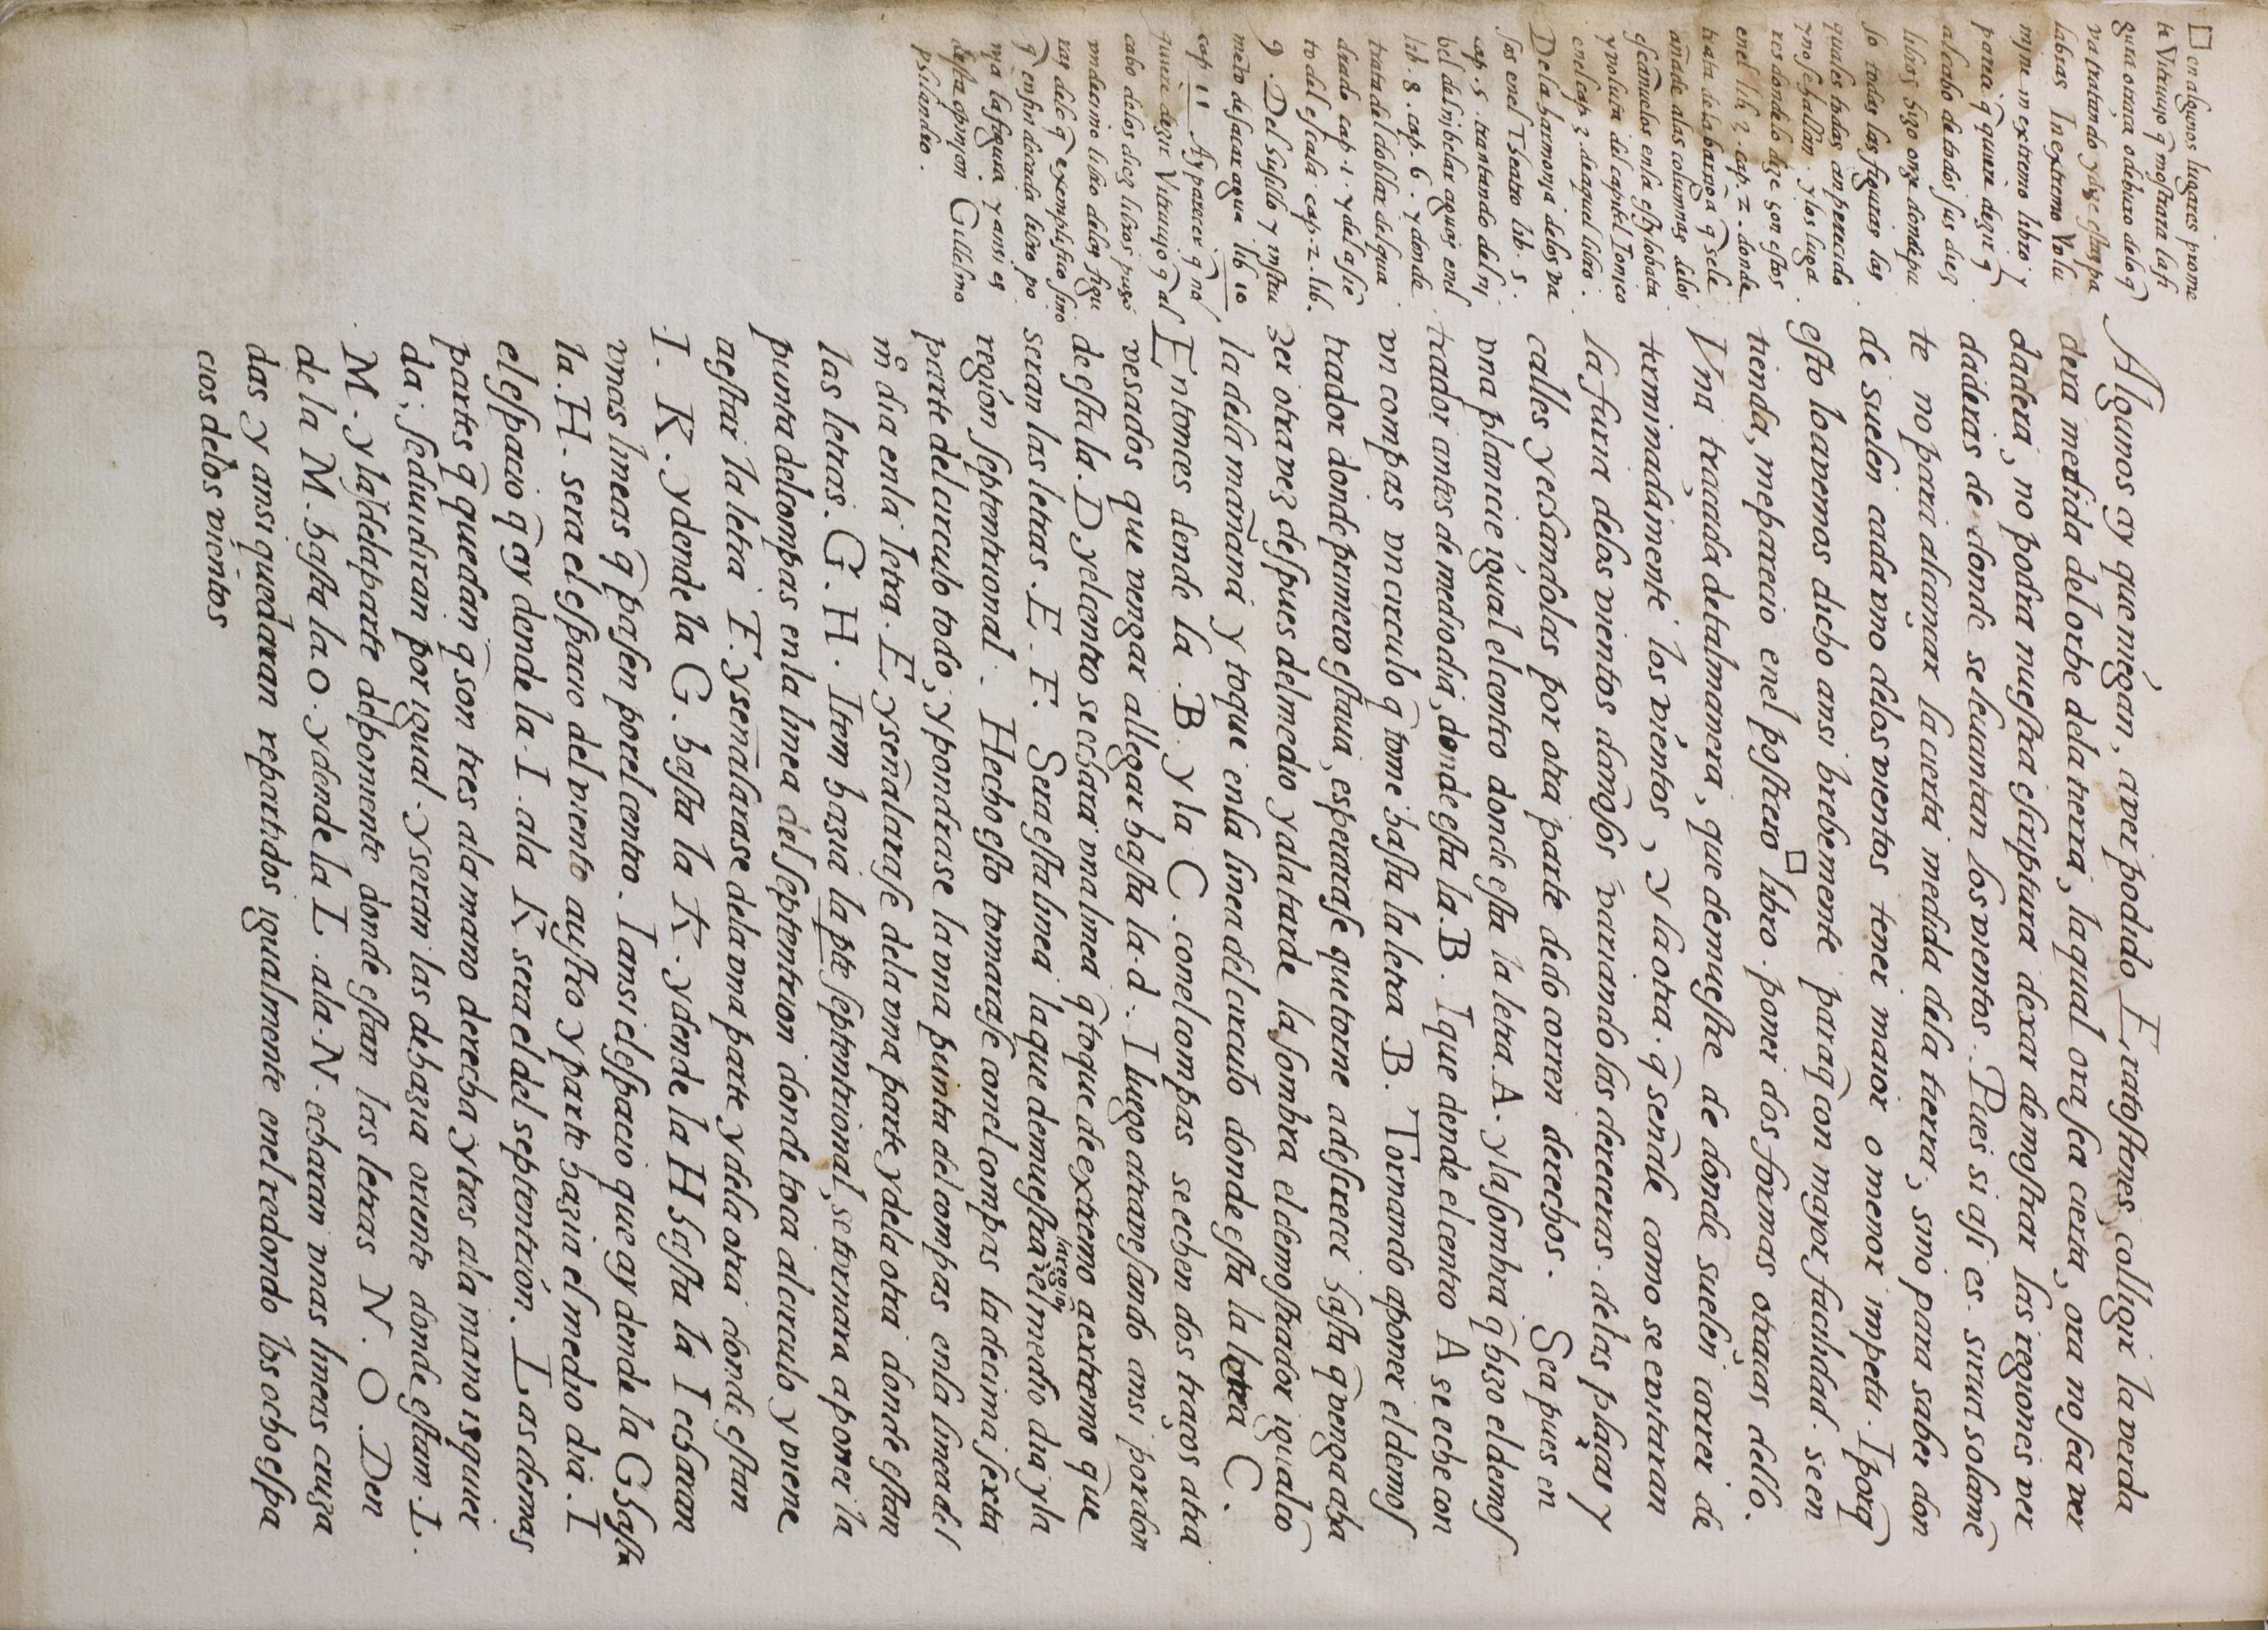 □ en algunos lugares prome
te Vitruuyo q̃ mostrara la fi
gura o traça o debuxo de lo q̃
va tratando y dize estas pa
labras In extremo Volu
mjne in extremo libro y
pareçe q̃ quiere dezir q̃
al cabo de todos sus diez
libros hizo onze donde pu
so todas las figuras las
quales todas an pereçido
y no se hallan. y los luga
res donde lo dize son estos
en el lib. 3. cap. 2. donde
trata de la barriga q̃ se le
añade a las columnas de los
escamielos en la estylobata
y voluta del capitel Ionico
en el cap. 3 de aquel libro.
De la harmonya de los va
sos en el Theatro lib. 5.
cap. 5. tratando del ni
bel del nibelar aguas en el
lib. 8. cap. 6. y donde
trata del doblar del qua
drado cap. 1. y de la sie
to del escala cap. 2. lib.
9. Del husillo y instru
mẽto de sacar agua lib 10
cap 11 Ay pareçer q̃ no
quiere dezir Vitruuyo q̃ al
cabo de los diez libros puso
vndecimo libro de las figu
ras de lo q̃ exemplifico sino
q̃ en fin de cada libro po
nya la figura y ansi es
desta opinyon Gillelmo
philandro.
Algunos ay que niegan, aver podido Eratostenes, colligir la verda
dera medida del orbe de la tierra, la qual ora sea çierta, ora no sea ver
dadera, no podra nuestra escriptura dexar de mostrar las regiones ver
daderas de donde se leuantan los vientos. Pues si asi es. sirua solamẽ
te no para alcançar la çierta medida de la tierra, sino para saber don
de suelen cada vno de los vientos tener maior o menor impetu. I porq̃
esto lo avemos dicho ansi brebemente paraq̃ con major facilidad se en
tienda, me pareçio en el postrero □ libro. poner dos formas o traças dello.
Vna traçada de tal manera, que demuestre de donde suelen correr de
terminadamente los vientos, y la otra. q̃ señale como se euitaran
la furia de los vientos dañosos variando las dereceras de las plaças y
calles y echandolas por otra parte de do corren derechos. Sea pues en
vna planicie igual el centro donde esta la letra. A. y la sombra q̃ hizo el demos
trador antes de medio dia, donde esta la. B. I que dende el centro A se eche con
vn compas vn circulo q̃ tome hasta la letra B. Tornando a poner el demos
trador donde primero estaua, esperarase que torne a descreçer hasta q̃ venga a ha
zer otra vez despues del medio y a la tarde la sombra el demostrador igual cõ
la de la mañana y toque en la linea del circulo donde esta la letra C.
Entonces dende la. B. y la C. con el compas se echen dos traços atra
vesados que vengan allegar hasta la. d. I luego atravesando ansi por don
de esta la. D y el centro se echara vna linea q̃ toque de extremo a extremo que
seran las letras. E. F. Sera esta linea la que demuestra la region del medio dia y la
region septentrional. Hecho esto tomarase con el compas la deçima sexta
parte del circulo todo, y pondrase la vna punta del compas en la linea del
mº dia en la letra. E y señalarase de la vna parte y de la otra donde estan
las letras. G. H. Item hazia la pte septentrional, se tornara a poner la
punta del compas en la linea del septentrion donde toca al circulo y viene
a estar la letra F. y señalarase de la vna parte y de la otra donde estan
.I. K. y dende la G. hasta la K. y dende la H hasta la I echaran
vnas lineas q̃ pasen por el centro. I ansi el espacio que ay dende la G hasta
la. H. sera el espacio del viento austro y parte hazia el medio dia. I
el espacio q̃ ay dende la. I. a la K sera el del septentrion. Las demas
partes q̃ quedan q̃ son tres a la mano derecha y tres a la mano izquier
da, se diuidiran por igual. y seran las de hazia oriente donde estan. L.
M. y las de la parte del poniente donde estan las letras N. O. Den
de la M. hasta la O. y dende la L. a la. N. echaran vnas lineas cruza
das y ansi quedaran repartidos igualmente en el redondo los ocho espa
cios de los vientos